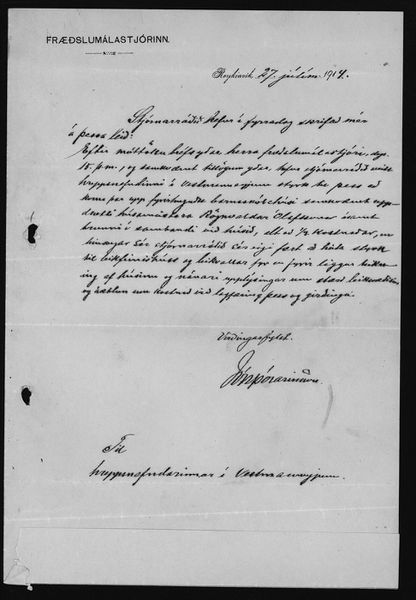 FRÆÐSLUMÁLASTJÓRINN.
Reykjavík, 27. júlím. 1914.
Stjórnarráðið hefur í fyrradag skrifað mér
á þessa leið:
Eftir móttöku bréfs yðar, herra fræðslumálastjóri, dags.
15. þ.m., og samkvæmt tillögum yðar, hefur stjórnarráðið veitt
hreppsnefndinni í Vestmannaeyjum styrk til þess að
koma þar upp fyrirhuguðu barnaskólahúsi samkvæmt upp-
drætti húsameistara Rögnvaldar Ólafssonar ásamt
brunni í sambandi við húsið, alt að 1/3 kostnaðar, en
hinsvegar sér stjórnarráðið sér eigi fært að heita styrk
til leikfimishúss og leikvallar fyr en fyrir liggur teikn-
ing af húsinu og nánari upplýsingar um stærð leikvallarins
og áætlun um kostnað við lagfæring þess og girðingu.
Virðingarfylst.
Jón Þórarinsson
Til
hreppsnefndarinnar í Vestmannaeyjum.